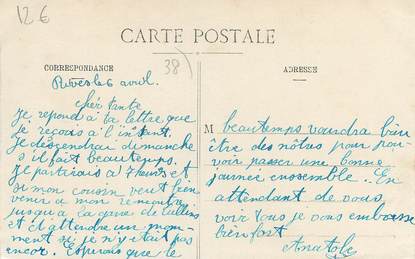 12 €
CARTE POSTALE
38)
CORRESPONDANCE
ADRESSE
Rives les 6 avril.
Chér tante
Je repond a ta lettre que
je reçois a l'instant.
Je descendrai dimanche
s'il fait beau temps.
Je partirais a 7 heures et
si mon cousin veut bien
venir a mon rencontre
jusqu'a la gare de Tullins
et il attendre un mo-
ment si je n'y était pas
encor. Esperons que le
M
beau temps voudra bien
être des nôtres pour pou-
voir passer une bonne
journée enssemble. En
attendant de vous
voir tous je vous embrasse
bien fort
Anatole